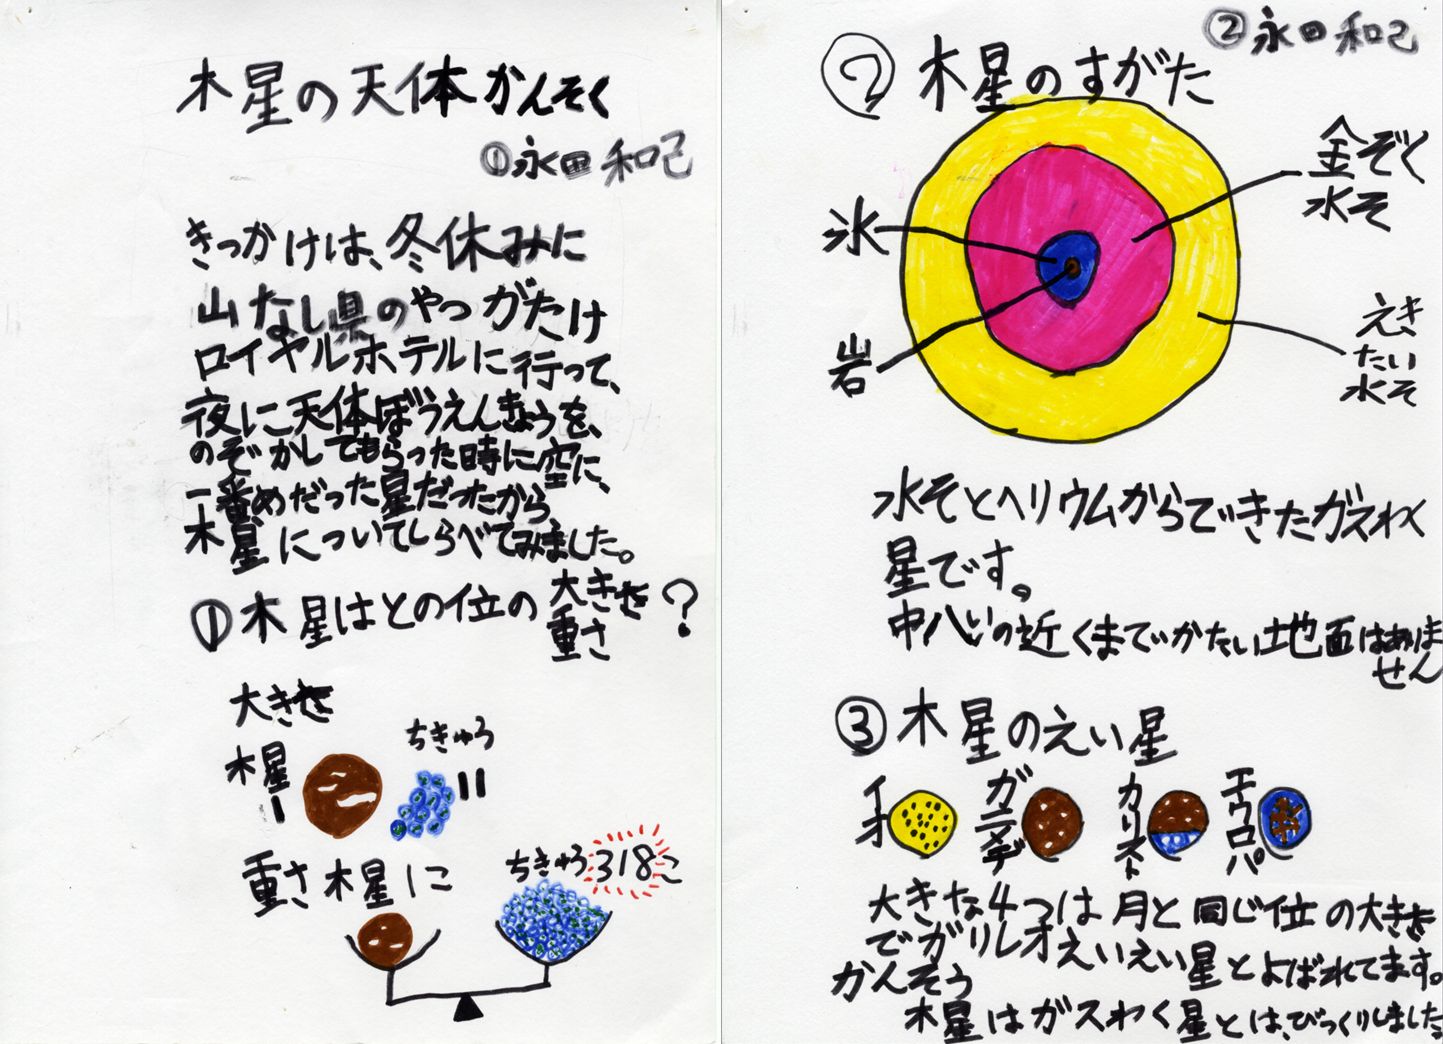 木星の天体かんそく
①永田 和己
きっかけは、冬休みに
山なし県のやつがたけ
ロイヤルホテルに行って、
夜に天体ぼうえんきょうを、
のぞかしてもらった時に空に、
一番めだった星だったから
木星についてしらべてみました。
①木星はどの位の大きさ重さ?
大きさ
木星
ちきゅう
11
重さ木星に
ちきゅう318こ
②永田 和己
②木星のすがた
金ぞく
水そ
氷
岩
えき
たい
水そ
水そとヘリウムからできたガスわく
星です。
中心の近くまでかたい地面はありま
せん
③木星のえい星
イオ
ガニメデ
カリスト
エウロパ
大きな4つは月と同じ位の大きさ
でガリレオえいえい星とよばれてます。
かんそう
木星はガスわく星とは、びっくりしました。